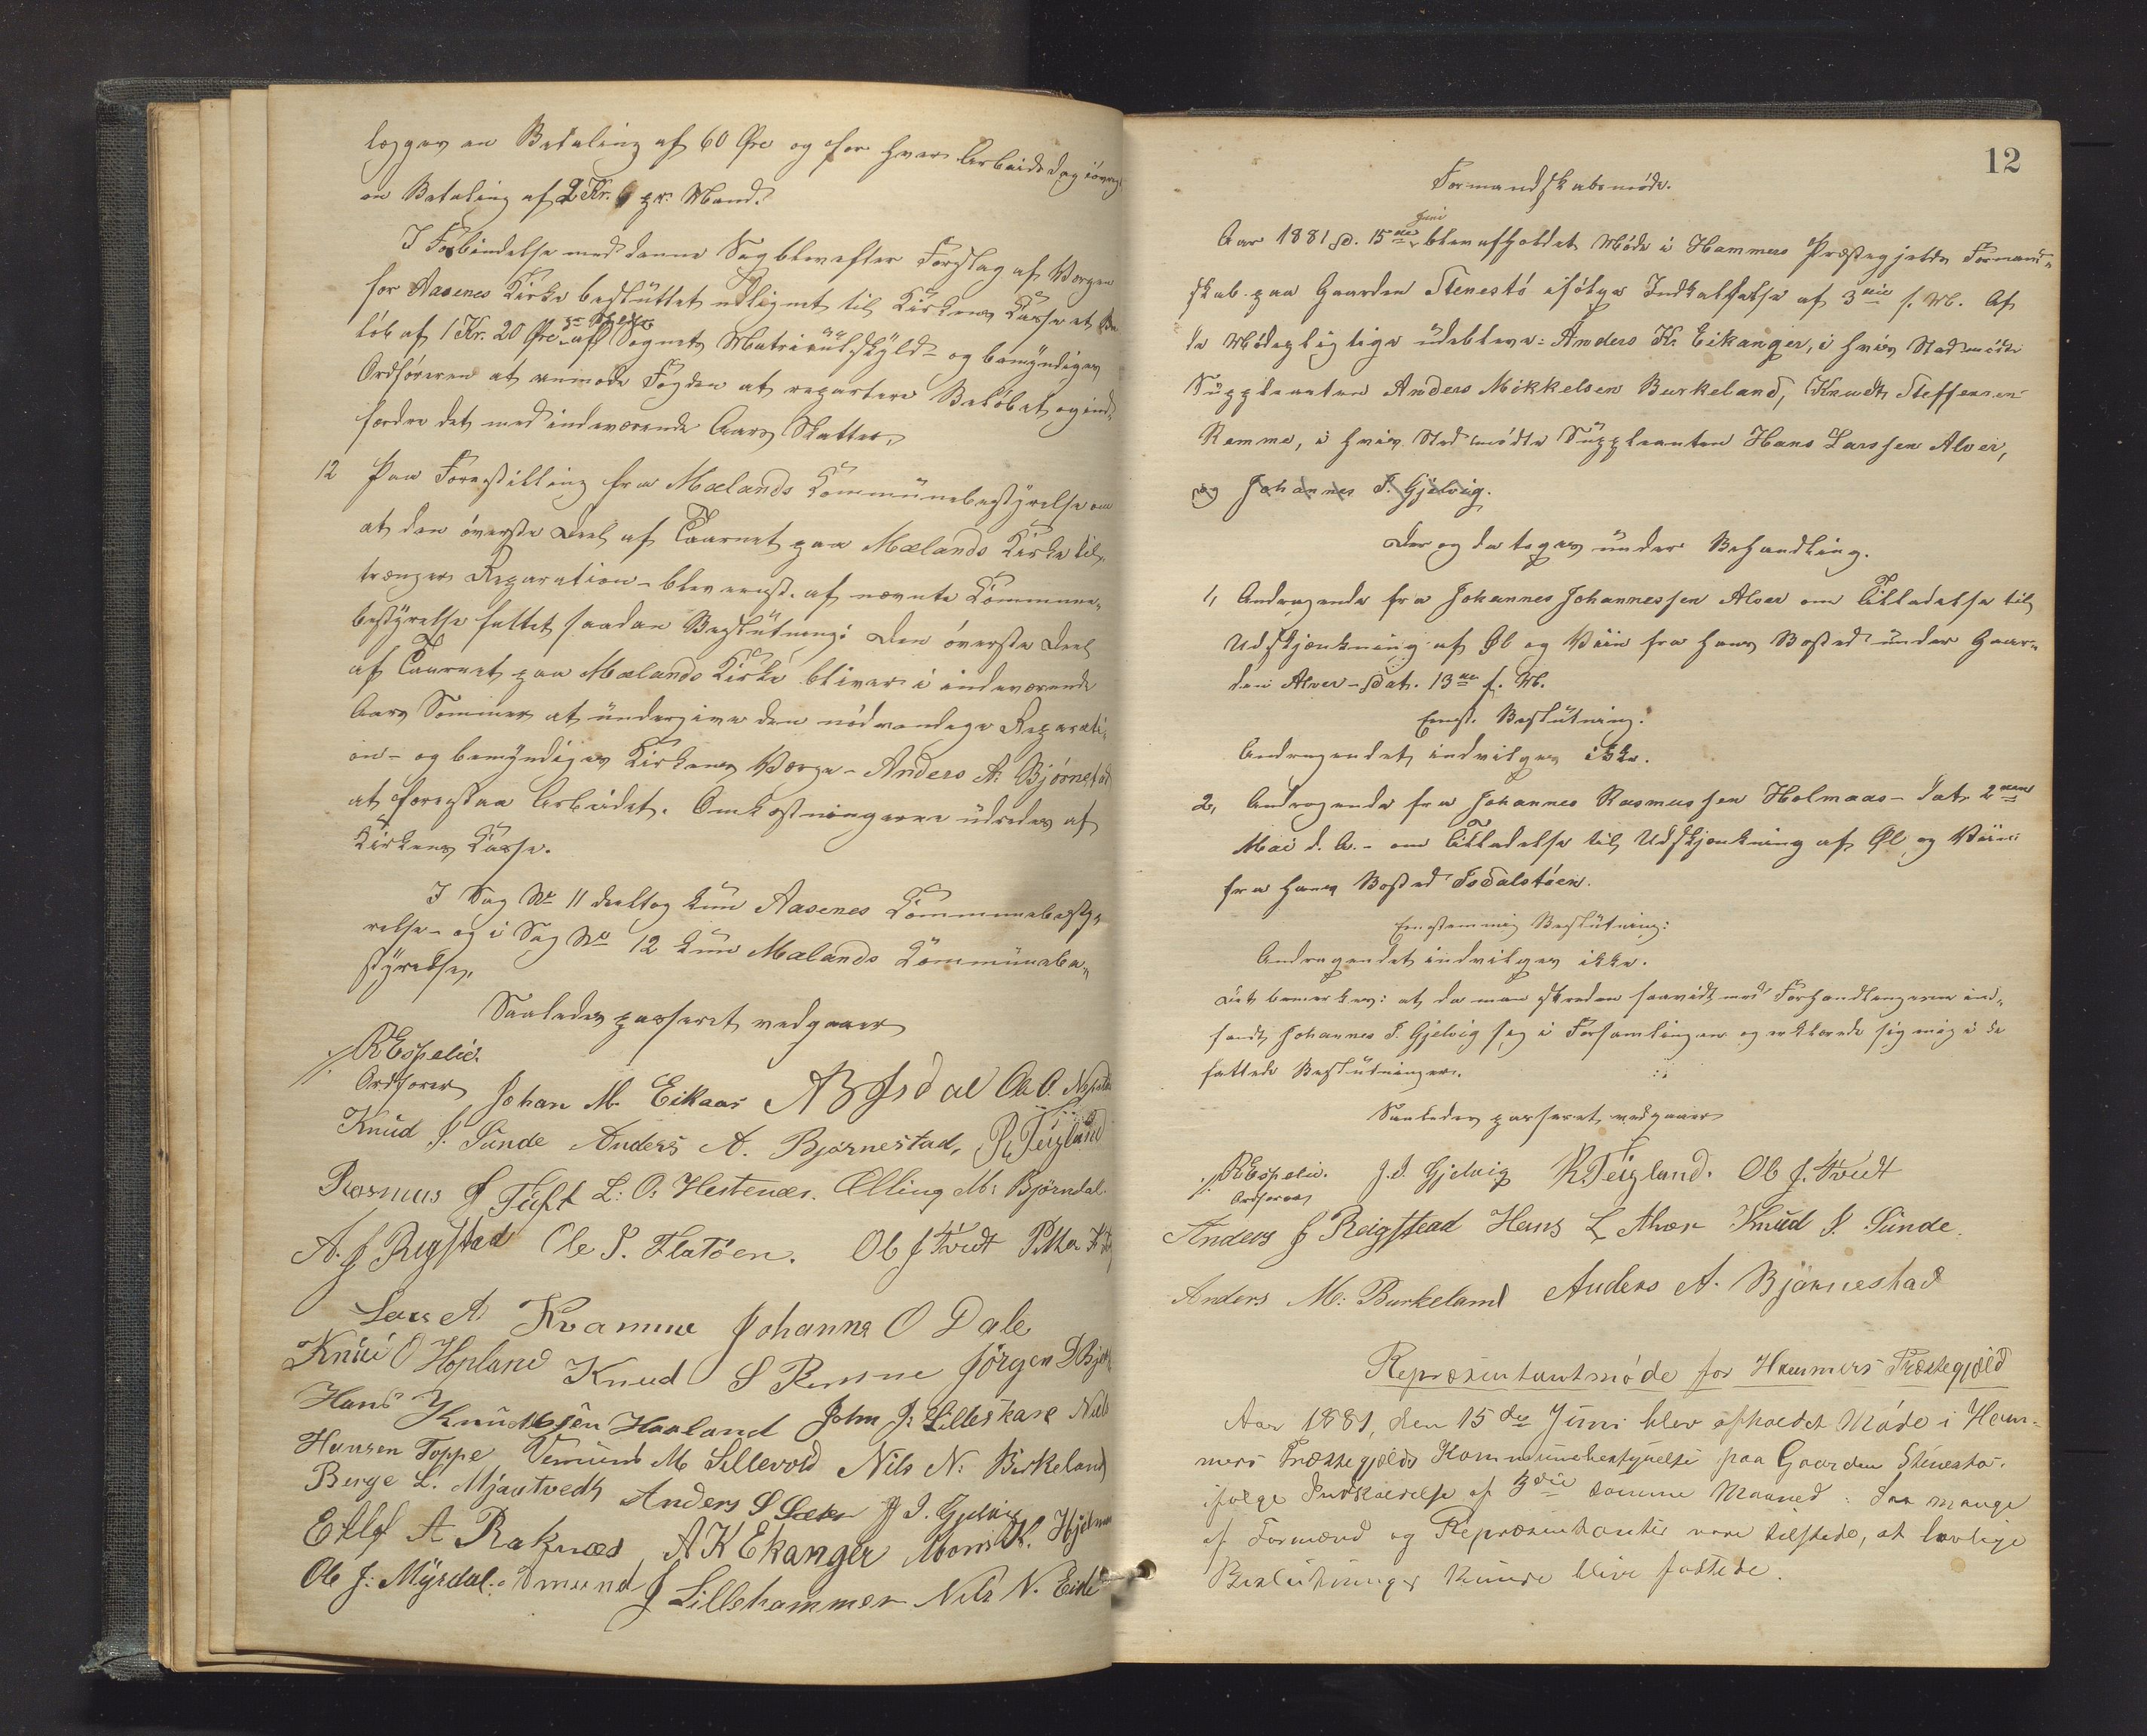 lægges en Betaling af 60 Øre og for hver Arbeidsdag iøvrigt
en Betaling af 2 Kr. pr. Mand.
I Forbindelse med denne Sag blev efter Forslag af Værgen
for Aasenes Kirke besluttet udlignet til Kirkens Kasse et Be-
løb af 1 Kr. 20 Øre af Sognets Matriculskyld - og bemyndiges
Ordføreren at anmode Fogden at repartere Beløbet og ind-
fordre det med indeværende Aars Skatter.
12 Paa Forestilling fra Mælands Kommunebestyrelse om
at den øverste Deel af Taarnet paa Mælands Kirke til-
trænger Reparation - blev eenst. af nævnte Kommune-
bestyrelse fattet saadan Beslutning: Den øverste Deel
af Taarnet paa Mælands Kirke bliver i indeværende
Aars Sommer at undergive den nødvendige Reparati-
on - og bemyndiges Kirkens Værge - Anders A. Bjørnestad
at forestaa Arbeidet. Omkostningerne udredes af
Kirkens Kasse.
I Sag No 11 deeltog kun Aasenes Kommunebesty-
relse - og i Sag No 12 kun Mælands Kommunebe-
styrelse.
Saaledes passeret vedgaaer
R Espelid.
Ordfører Johan M. Eikaas A B Isdal Ole O. 
Knud S. Sunde Anders A. Bjørnestad, R Teigland
Rasmus J Toft L: O: Hestenæs. Elling M: Bjørndal.
A. J Reigstad Ole P. Flatøen. Ole J. Tvedt
Lars A. Kvamme Johannes O Dale
Knud O Hopland Knud S Remme Jørgen D
Hans Knudssen Haaland John J. Lilleskare Nils
Hansen Toppe Vemund M Sellevold Nils N: Birkeland
Berge L. Mjaatvedt Anders S J. I. Gjelvig
A Raknes A K Ekanger Mons Hjelm
Ole J: Myrdal. Amund J Lillehammer Nils N. Eide
12
Formandskabsmøde.
Aar 1881 d. 15de Juni blev afholdet Møde i Hammers Præstegjelds Formand-
skab paa Gaarden Stenestø ifølge Indkaldelse af 3die s. M. Af
de Mødepligtige udebleve: Anders K. Eikanger, i hvis Sted mødte
Suppleanten Anders Mikkelsen Burkeland, Knudt Steffensen
Remme, i hvis Sted mødte Suppleanten Hans Larssen Alver,
og Johannes I. Gjelvig.
Der og da toges under Behandling.
1, Andragende fra Johannes Johannessen Alver om Tilladelse til
Udskjænkning af Øl og Viin fra hans Bosted under Gaar-
den Alver - dat. 13de s. M.
Eenst. Beslutning:
Andragendet indvilges ikke.
2, Andragende fra Johannes Rasmussen Holmaas - dat. 2den
Mai d. A. - om Tilladelse til Udskjænkning af Øl og Viin
fra hans Bosted Isdalstøen.
Eenstemmig Beslutning:
Andragendet indvilges ikke.
Det bemærkes: at da man skreden saavidt med Forhandlingerne ind-
fandt Johannes I. Gjelvig sig i Forsamlingen og erklærede sig enig i de
fattede Beslutninger.
Saaledes passeret vedgaaer
R Espelid. J. I. Gjelvig R. Teigland. Ole J. Tvedt
Ordfører
Anders J Reigstead Hans L Alver Knud S. Sunde.
Anders M: Burkeland Anders A. Bjørnestad
Repræsentantmøde for Hammers Præstegjæld
Aar 1881, den 15de Juni blev afholdet Møde i Ham-
mers Præstegjælds Kommunebestyrelse paa Gaarden Stenestø.
ifølge Indkaldelse af 3die samme Maaned: Saa mange
af Formænd og Repræsentanter vare tilstede, at lovlige
Beslutninger kunde blive fattede.